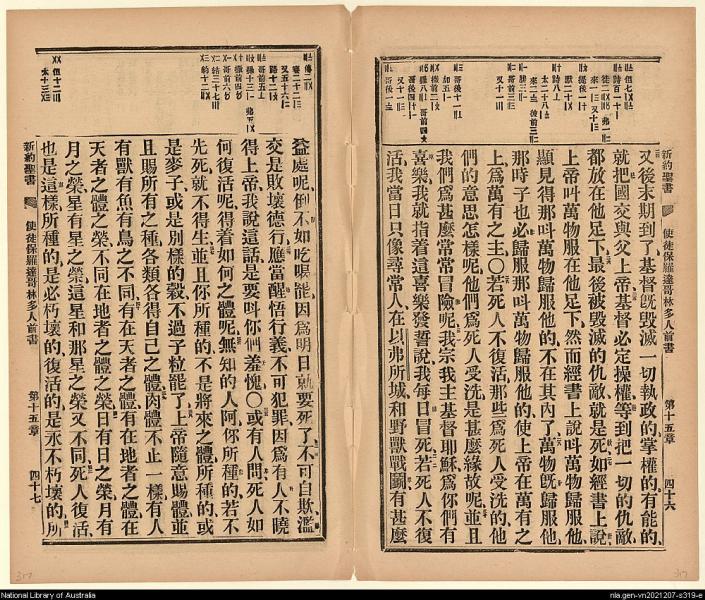 新約聖書 使徒保羅達哥林多人前書 第十五章 四十六
又後末期到了基督旣毀滅一切執政的掌權的有能的
就把國交與父上帝基督必定操權等到把一切的仇敵
都放在他足下最後被毀滅的仇敵就是死如經書上說
上帝叫萬物服在他足下然而經書上說叫萬物服他
顯見得那叫萬物歸服他的不在其內了萬物旣歸服他
那時子也必歸服那叫萬物歸服他的使上帝在萬有之
上爲萬有之主〇若死人不復活那些爲死人受洗的他
們的意思怎樣呢他們爲死人受洗是甚麼緣故呢並且
我們爲甚麼常常冒險呢我宗我主基督耶穌爲你們有
喜樂我就指着這喜樂發誓說我每日冒死若死人不復
活我當日只像尋常人在以弗所城和野獸戰鬭有甚麼
益處呢倒不如吃喝罷因爲明日就要死了不可自欺濫
交是敗壞德行應當醒悟行義不可犯罪因爲有人不曉
得上帝我說這話是要叫你們羞愧〇或有人問死人如
何復活呢得着如何之體呢無知的人阿你所種的若不
先死就不得生並且你所種的不是將來之體所種的或
是麥子或是別樣的穀不過子粒罷了上帝隨意賜體並
且賜所有之種各類各得自己之體肉體不止一樣有人
有獸有魚有鳥之不同有在天者之體有在地者之體在
天者之體之榮不同在地者之體之榮日有日之榮月有
月之榮星有星之榮這星和那星之榮又不同死人復活
也是這樣所種的是必朽壞的復活的是永不朽壞的所
新約聖書 使徒保羅達哥林多人前書 第十五章 四十七
317
317
National Library of Australia
nla.gen-vn2021207-s319-e